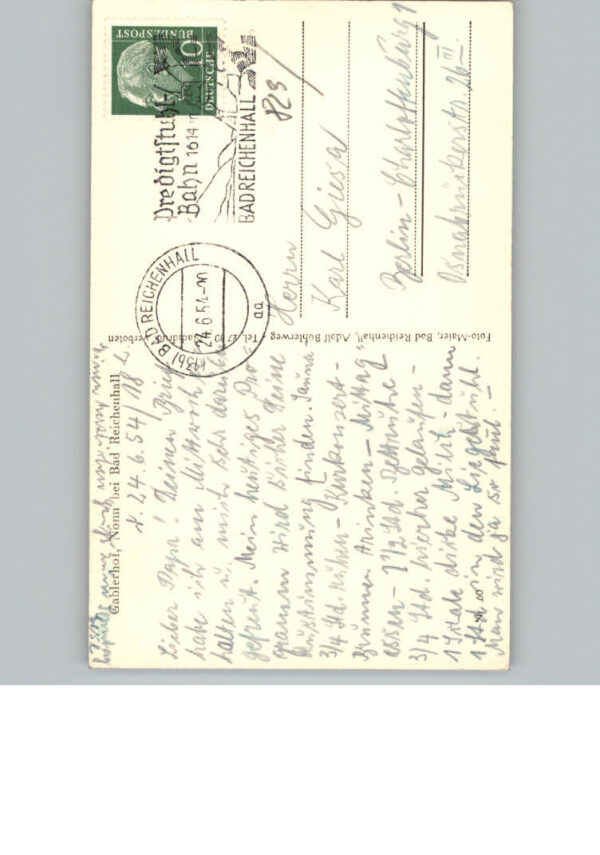 Gablerhof, Nonn bei Bad Reichenhall
d. 24.6.54/18 h.
Lieber Papa! Deinen Brief
habe ich am Mittwoch er-
halten u. mich sehr darüber
gefreut. Mein heutiges Pro-
gramm wird sicher Deine
Zustimmung finden.
3/4 Std. ruhen - Kurkonzert -
Brunnen trinken - Mittag
essen - 1 1/2 Std. Bettruhe
3/4 Std. hierher gelaufen -
1 Schale dicke Milch - dann
1 Std. in den Liegestuhl.
Man wird ja so faul. -
Foto-Maier, Bad Reichenhall, Adolf Bühlerweg - Tel. 27 10 Nachdruck verboten
DEUTSCHE
BUNDESPOST
10
Predigtstuhl
Bahn 1614 m
BAD REICHENHALL
(13b) BAD REICHENHALL
24.6.54-20
aa
823
Herrn
Karl Giesa
Berlin-Charlottenburg 9
Osnabrückerstr. 26 III.